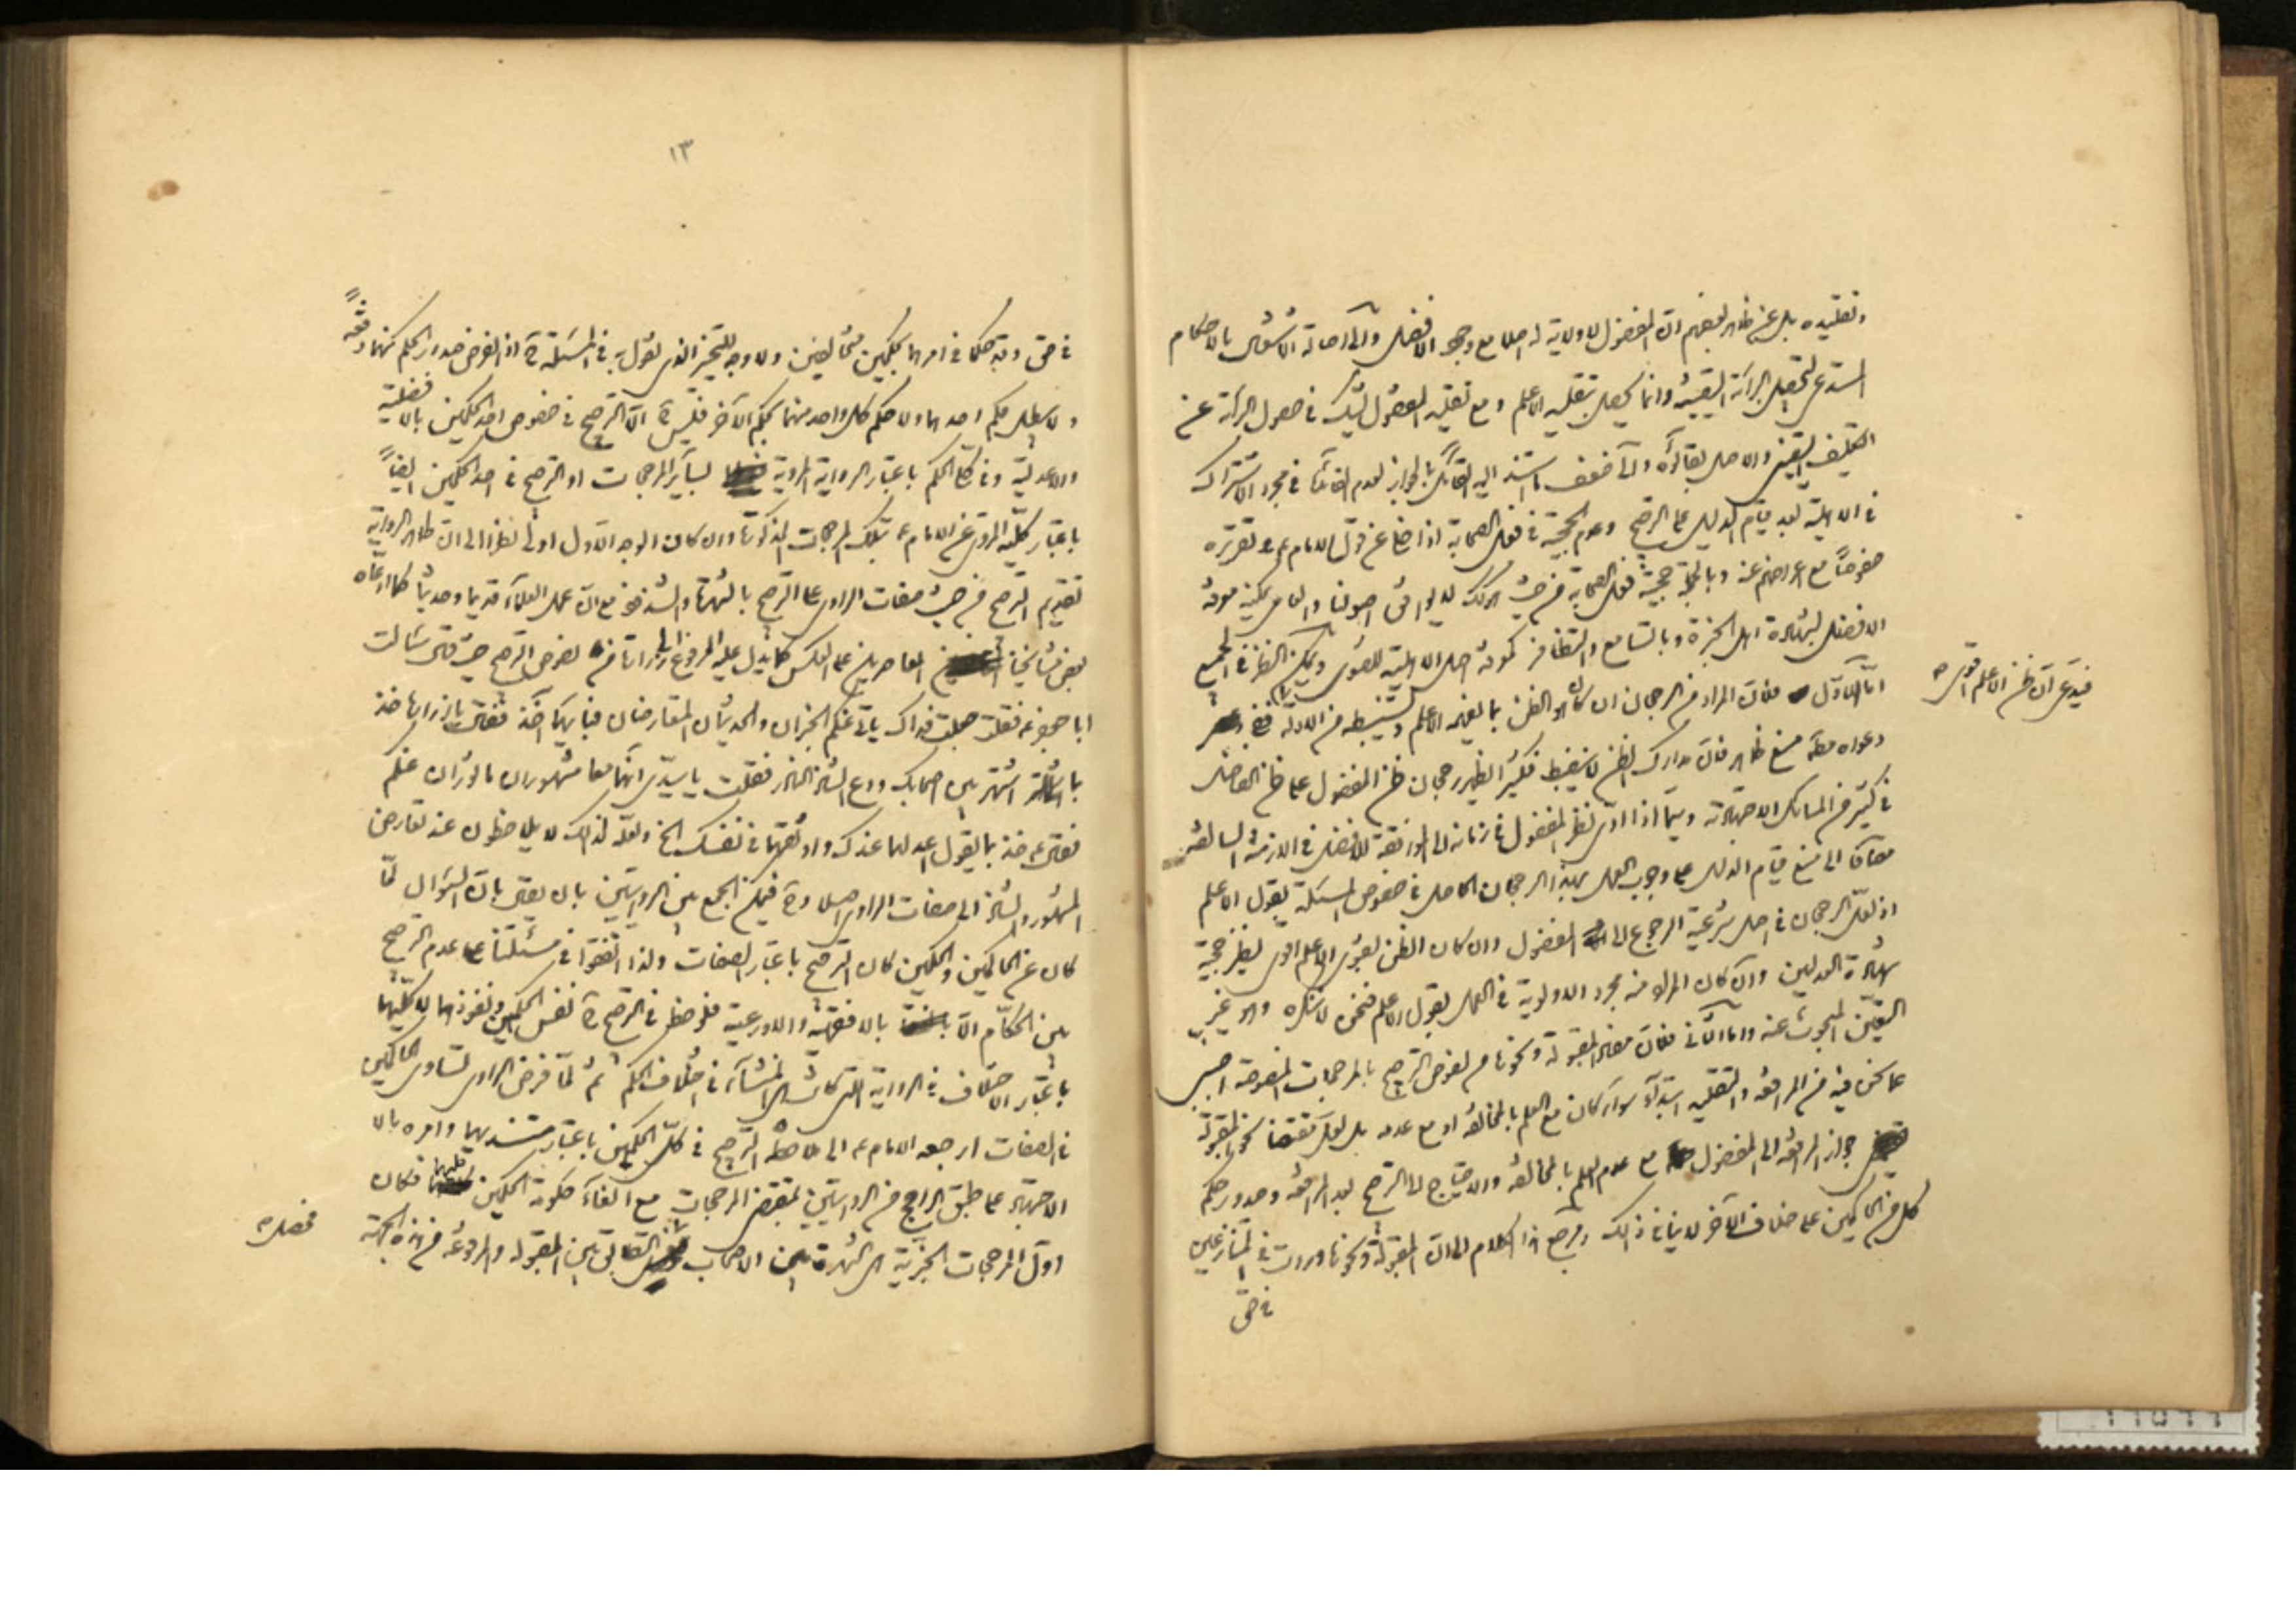 وتقليده بل عن ظاهر بعضهم ان المفضول لا ولاية له اصلا مع وجود الافضل والى اصالة الاشتغال بالاحكام
المستدعى لتحصيل البرائة اليقينية وانما يحصل بتقليد الاعلم ومع تقليد المفضول يشك في حصول البرائة عن
التكليف اليقيني والاصل بقاؤه والى ضعف ما استند اليه القائل بالجواز لعدم في مجرد الاشتراك
في الاهلية بعد قيام الدليل على الترجيح وعدم الحجية في فعل الصحابة اذا خلا عن قول الامام ع وتقريره
خصوصا مع اعراضهم عنه وبالجملة حجية فعل الصحابة من حيث هو كك لا يوافق اصولنا والعامى يمكنه معرفة
الافضل بشهادة اهل الخبرة وبالتسامع والتظافر كمعرفة اصل الاهلية للفتوى ويمكن النظر في الجميع
اما الاول فلان المراد من الرجحان ان كان هو الظن بما يفهمه الاعلم ويستنبطه من الادلة ففى
فيدعى ان ظن الاعلم اقوى
دعواه مطلقا منع ظاهر فان مدارك الظن لا ينضبط فكثيرا يظهر رجحان ظن المفضول على ظن الفاضل
في كثير من المسائل الاجتهادية وسيما اذا ادى نظر المفضول في زمانه الى الموافقة للافضل في الازمنة السالفة
مضافا الى منع قيام الدليل على وجوب العمل بهذا الرجحان الحاصل في خصوص المسئلة بقول الاعلم
اذ لعل الرجحان في اصل شرعية الرجوع الى المفضول وان كان الظن بفتوى الاعلم اقوى نظير حجية
شهادة العدلين وان كان المراد منه مجرد الاولوية في العمل بقول الاعلم فنحن لا ننكره وهو غير
التعين المبحوث عنه واما الثانى فلان مفاد المقبولة ونحوها هو لفرض الترجيح بالمرجحات المنصوصة اجنبى
عما نحن فيه من المرافعة والتقليد ابتداء سواء كان مع العلم بالمخالفة او مع عدمه بل لعل مقتضى نحو المقبولة
جواز المرافعة الى المفضول مع عدم العلم بالمخالفة والاحتياج الى الترجيح بعد المرافعة وصدور حكم
كل من الحاكمين على خلاف الاخر لا ينافى ذلك ومرجع هذا الكلام الى ان المقبولة ونحوها وردت في المتنازعين
في حق
١٣
في حق وقد حكما في امرهما بحكمين متخالفين ولا وجه للتخيير الذى نقول به في المسئلة ح اذ الفرض صدور الحكم منهما دفعة
ولا يبطل حكم احدهما ولا حكم كل واحد منهما بحكم الاخر فليس ح الا الترجيح في خصوص احد الحكمين بالافضلية
والاعدلية وفى كلى الحكم باعتبار الرواية المروية لسائر المرجحات او الترجيح في احد الحكمين ايضا
باعتبار كلية المروى عن الامام ع بتلك المرجحات المذكورة وان كان الوجه الاول اولى نظرا الى ان ظاهر الرواية
تقديم الترجيح من حيث صفات الراوى على الترجيح بالشهرة والشذوذ مع ان عمل العلماء قديما وحديثا كما ادعاه
بعض مشايخنا المعاصرين على العكس كما يدل عليه المرفوع الى زرارة لفرض الترجيح حيث قال سئلت
ابا جعفر ع فقلت جعلت فداك ياتى عنكم الخبران والحديثان المتعارضان فبايهما اخذ فقال يا زرارة خذ
بما اشتهر بين اصحابك ودع الشاذ النادر فقلت يا سيدى انهما معا مشهوران ماثوران عنكم
فقال ع خذ بما يقول اعدلهما عندك واوثقهما في نفسك الخ ولعله لذلك لا يلاحظون عند تعارض
المشهور والشاذ الى صفات الراوى اصلا وح فيمكن الجمع بين الروايتين بان يقال بان السؤال لما
كان عن الحاكمين والحكمين كان الترجيح باعتبار الصفات ولذا اتفقوا في مسئلتنا على عدم الترجيح
بين الحكام الا بالافقهية والاورعية فلوحظ في الترجيح ح نفس الحكمين ونفوذهما لا كليهما
باعتبار الاختلاف في الرواية التى كانت هى المنشأ في اختلاف الحكم ثم لما فرض الراوى تساوى الحاكمين
في الصفات ارجعه الامام ع الى ملاحظة الترجيح في كلى الحكمين باعتبار مستنديهما وامره بالا
الاجتهاد على طبق الراجح من الروايتين بمقتضى المرجحات مع الغاء حكومة الحكمين فكان
اول المرجحات الخبرية هى الشهرة بين الاصحاب التطابق بين المقبولة والمرفوعة من هذه الجهة
فحصل